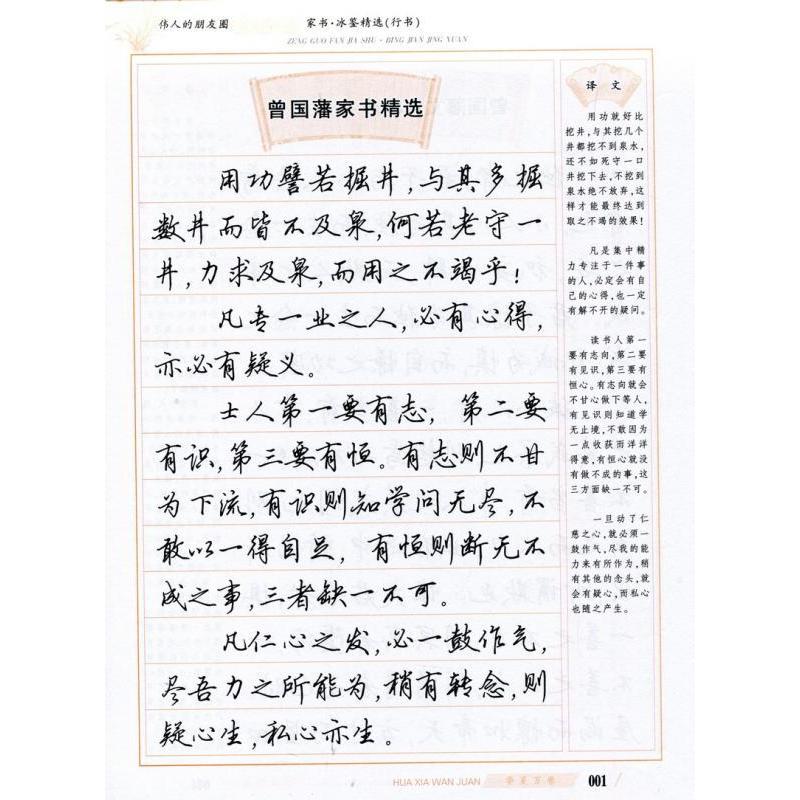 伟人的朋友圈
家书·冰鉴精选(行书)
ZENG GUO FAN JIA SHU · BING JIAN JING XUAN
曾国藩家书精选
用功譬若掘井,与其多掘
数井而皆不及泉,何若老守一
井,力求及泉,而用之不竭乎!
凡专一业之人,必有心得,
亦必有疑义。
士人第一要有志,第二要
有识,第三要有恒。有志则不甘
为下流,有识则知学问无尽,不
敢以一得自足,有恒则断无不
成之事,三者缺一不可。
凡仁心之发,必一鼓作气,
尽吾力之所能为,稍有转念,则
疑心生,私心亦生。
译文
用功就好比
挖井,与其挖几个
井都挖不到泉水,
还不如死守一口
井挖下去,不挖到
泉水绝不放弃,这
样才能最终达到
取之不竭的效果!
凡是集中精
力专注于一件事
的人,必定会有自
己的心得,也一定
有解不开的疑问。
读书人第一
要有志向,第二要
有见识,第三要有
恒心。有志向就会
不甘心做下等人,
有见识则知道学
无止境,不敢因为
一点收获而洋洋
得意,有恒心就没
有做不成的事,这
三方面缺一不可。
一旦动了仁
慈之心,就必须一
鼓作气,尽我的能
力来有所作为,稍
有其他的念头,就
会有疑心,而私心
也随之产生。
HUA XIA WAN JUAN
华夏万卷
001